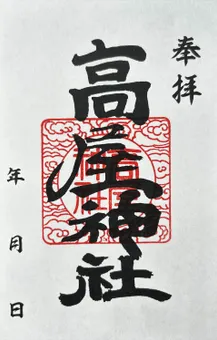 奉拝
高屋神社
年月日